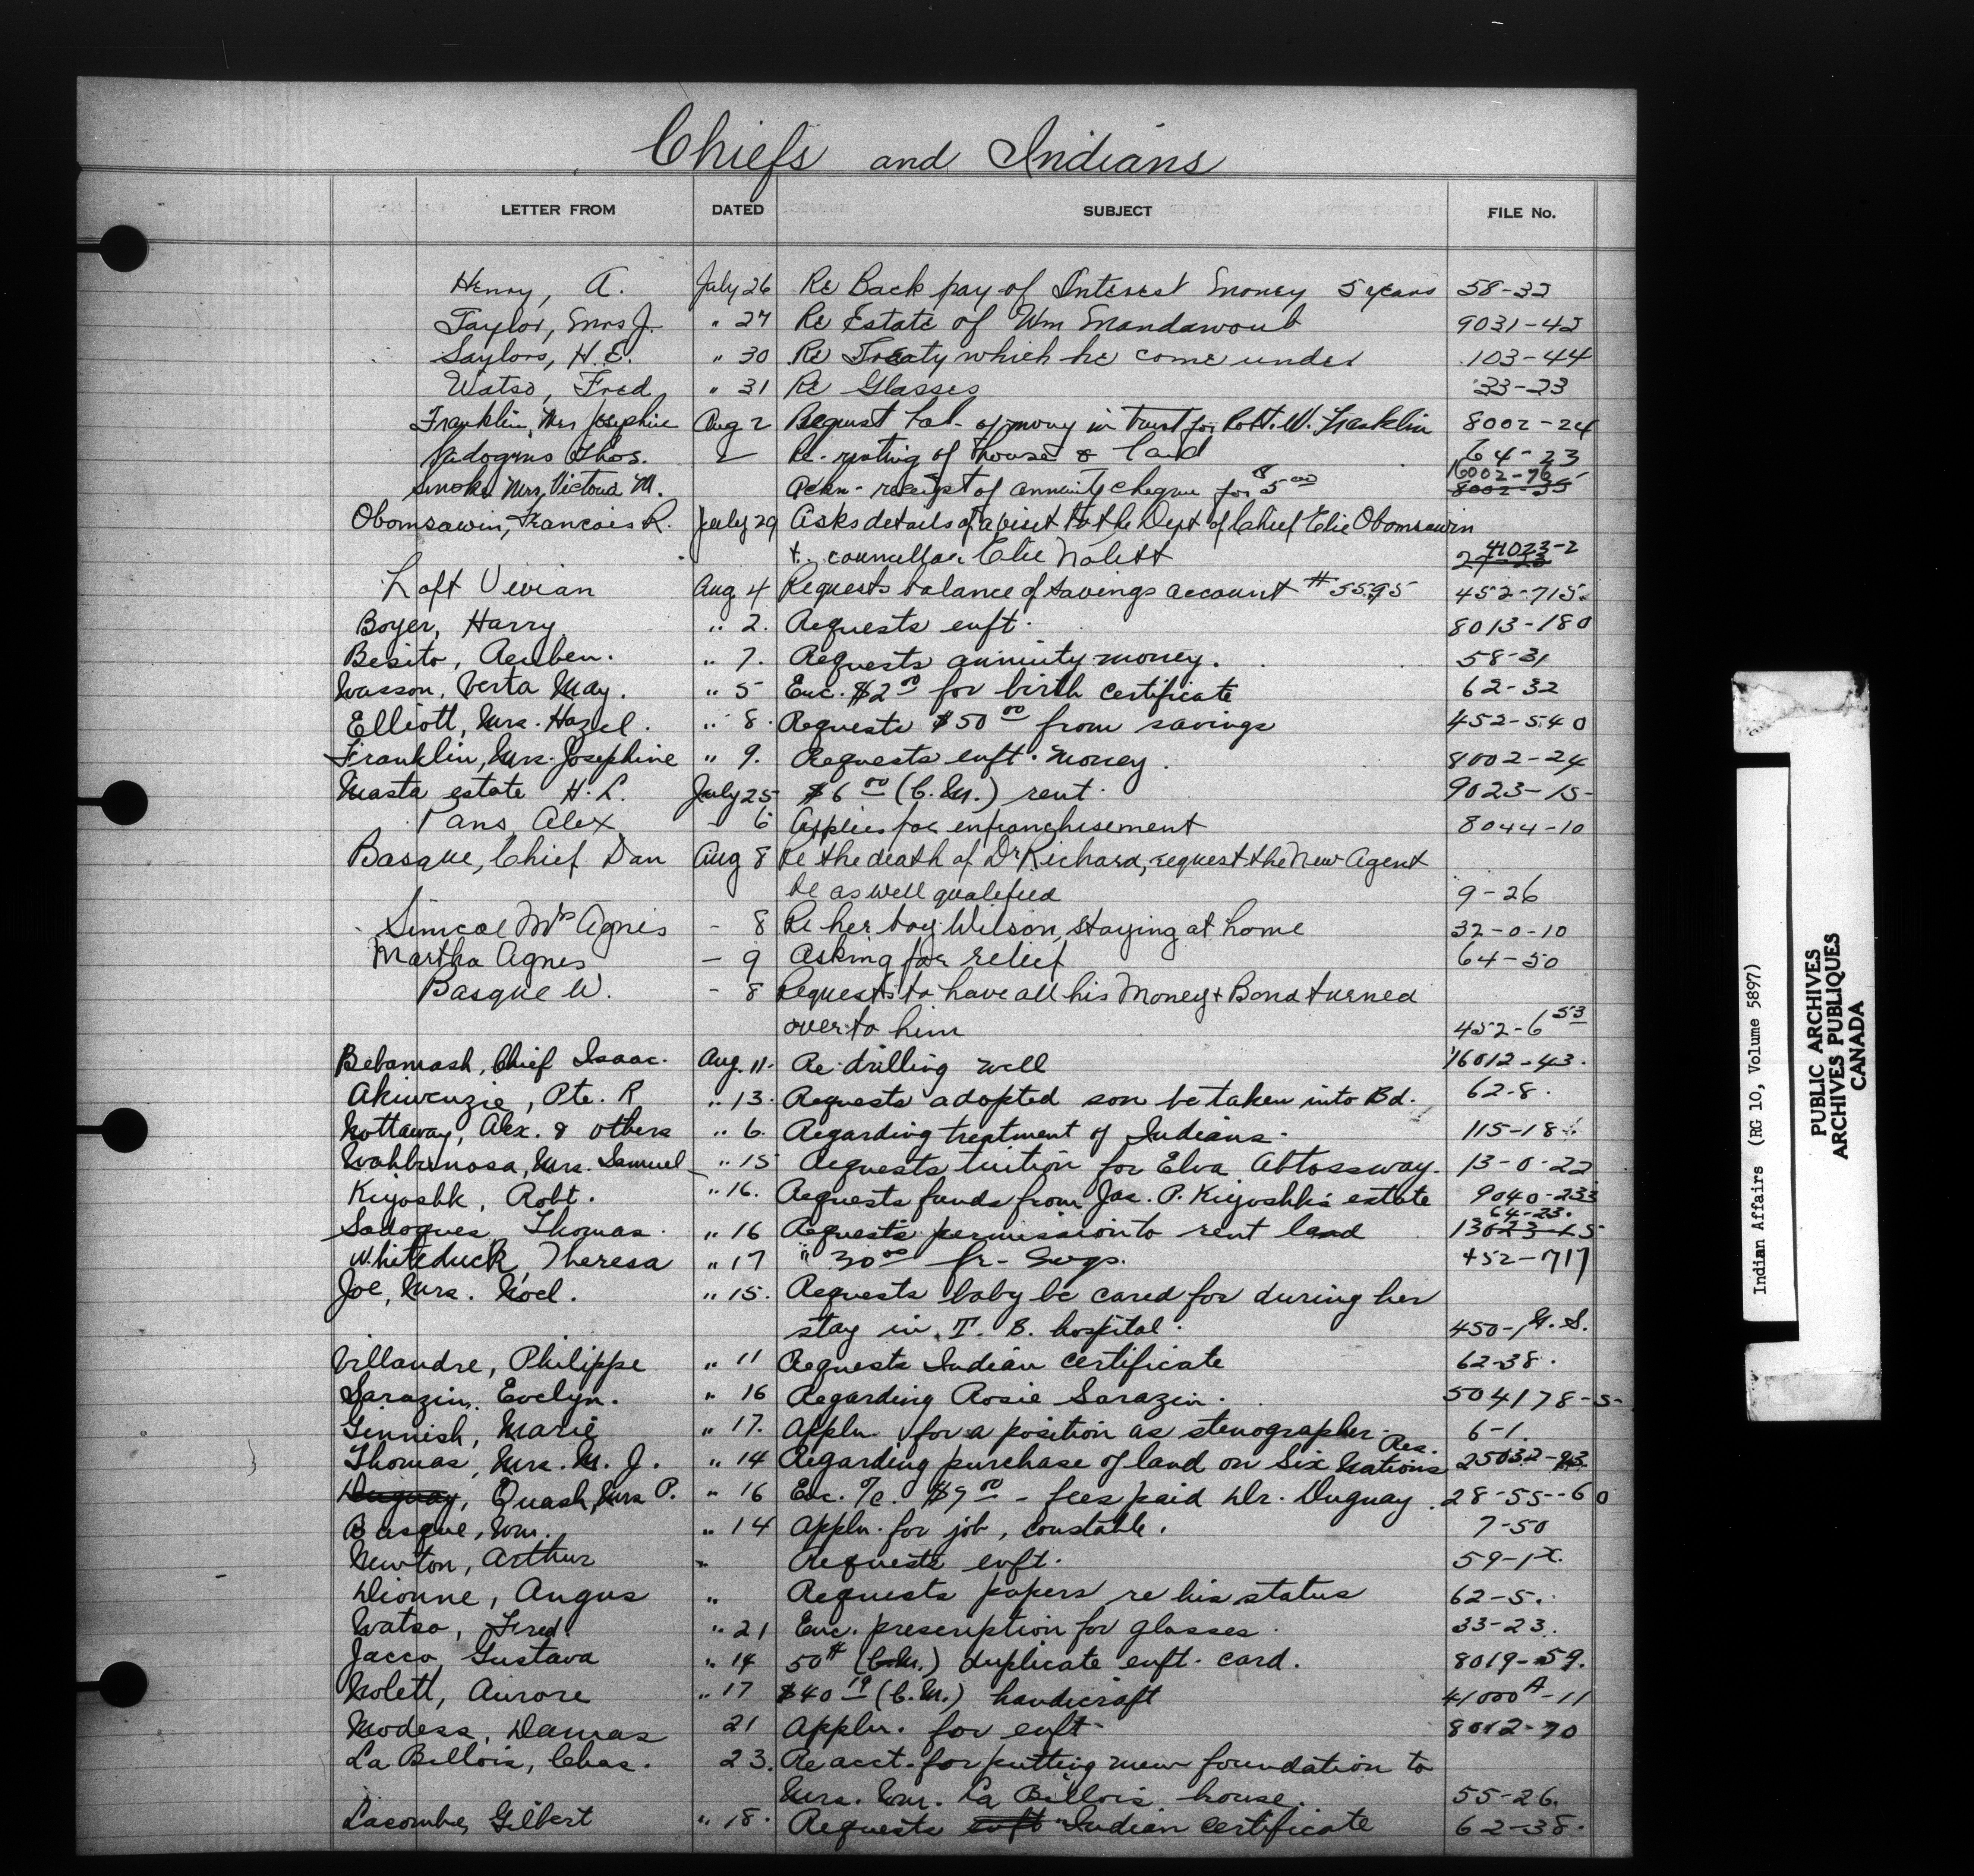 Chiefs and Indians
LETTER FROM DATED SUBJECT FILE No.
Henry, A. July 26 Re Back pay of Interest money 5 years 58-32
Taylor, Mrs J. " 27 Re Estate of Wm Mandawoub 9031-42
Saylors, H.E. " 30 Re Treaty which he come under 103-44
Watso, Fred " 31 Re Glasses 33-23
Franklin, Mrs Josephine Aug 2 Request bal- of money in trust for Robt. W. Franklin 8002-24
Thos. 2 Re- renting of house & land 64-23
Smoke Mrs, Victoria M. Ackn- receipt of annuity cheque for $5 00 16002-76 8002-35
Obomsawin, Francois R. July 29 Asks details of a visit to the Dept of Chief Elie Obomsawin
+ councillor Elie Nolett 41023-2 27-23
Loft Vivian Aug 4 Requests balance of savings account # 5595 452-715
Boyer, Harry " 2. Requests enft. 8013-180
Besito, Reuben. " 7. Requests annuity money. 58-31
Wasson, Verta May. " 5 Enc. $2 00 for birth certificate 62-32
Elliott, Mrs. Hazel. " 8. Requests $50 00 from savings 452-540
Franklin, Mrs. Josephine " 9. Requests enft. money. 8002-24
Masta estate H. L. July 25 $6 00 (C.M.) rent. 9023-15
Alex - 6 Applies for enfranchisement 8044-10
Basque, Chief Dan Aug 8 Re the death of Dr Richard, request the New Agent
be as well qualified 9-26
Simcoe Mrs Agnes - 8 Re her boy Wilson, staying at home 32-0-10
Martha Agnes - 9 Asking for relief 64-50
Basque W. - 8 Requests to have all his Money + Bond turned
over to him 452-6 53
Bebamash, Chief Isaac. Aug. 11. Re drilling well 16012-43.
Akiwenzie, Pte. R " 13. Requests adopted son be taken into Bd. 62-8.
Nottaway, Alex. & others " 6. Regarding treatment of Indians. 115-18.
Wahbinosa, Mrs. Samuel " 15 Requests tuition for Elva Abtossway. 13-0-22
Kiyoshk, Robt. " 16. Requests funds from Jas. P. Kiyoshk's estate 9040-233
Sadoques Thomas. " 16 Requests permission to rent land 64-23. 13023-15
Whiteduck, Theresa " 17 " 30 00 fr- Svgs. 452-717
Joe, Mrs. Noel. " 15. Requests baby be cared for during her
stay in T. B. hospital. 450-N.S.
Villandre, Philippe " 11 Requests Indian certificate 62-38.
Sarazin, Evelyn. " 16 Regarding Rosie Sarazin. 504178-5-
Ginnish, Marie " 17. Appln. for a position as stenographer. 6-1.
Thomas, Mrs. M. J. " 14 Regarding purchase of land on Six Nations Res. 25032-93
Duguay, Quash, Mrs P. " 16 Enc. a/c. $9 00 - fees paid Dr. Duguay. 28-55-60
Basque, Wm. " 14 Appln. for job, constable. 7-50
Newton, Arthur " Requests enft. 59-1x.
Dionne, Angus " Requests papers re his status 62-5.
Watso, Fred. " 21 Enc. prescription for glasses. 33-23.
Jacco Gustava " 14 50¢ (C.M.) duplicate enft. card. 8019-59.
Nolett, Aurore " 17 $40 19 (C.M.) handicraft 41000A-11
Modess, Damas 21 Appln. for enft. 8012-70
La Billois, Chas. 23. Re acct. for putting new foundation to
Mrs. Wm. La Billois house. 55-26.
Lacombe, Gilbert " 18. Requests enft Indian certificate 62-38.
Indian Affairs (RG 10, Volume 5897)
PUBLIC ARCHIVES
ARCHIVES PUBLIQUES
CANADA